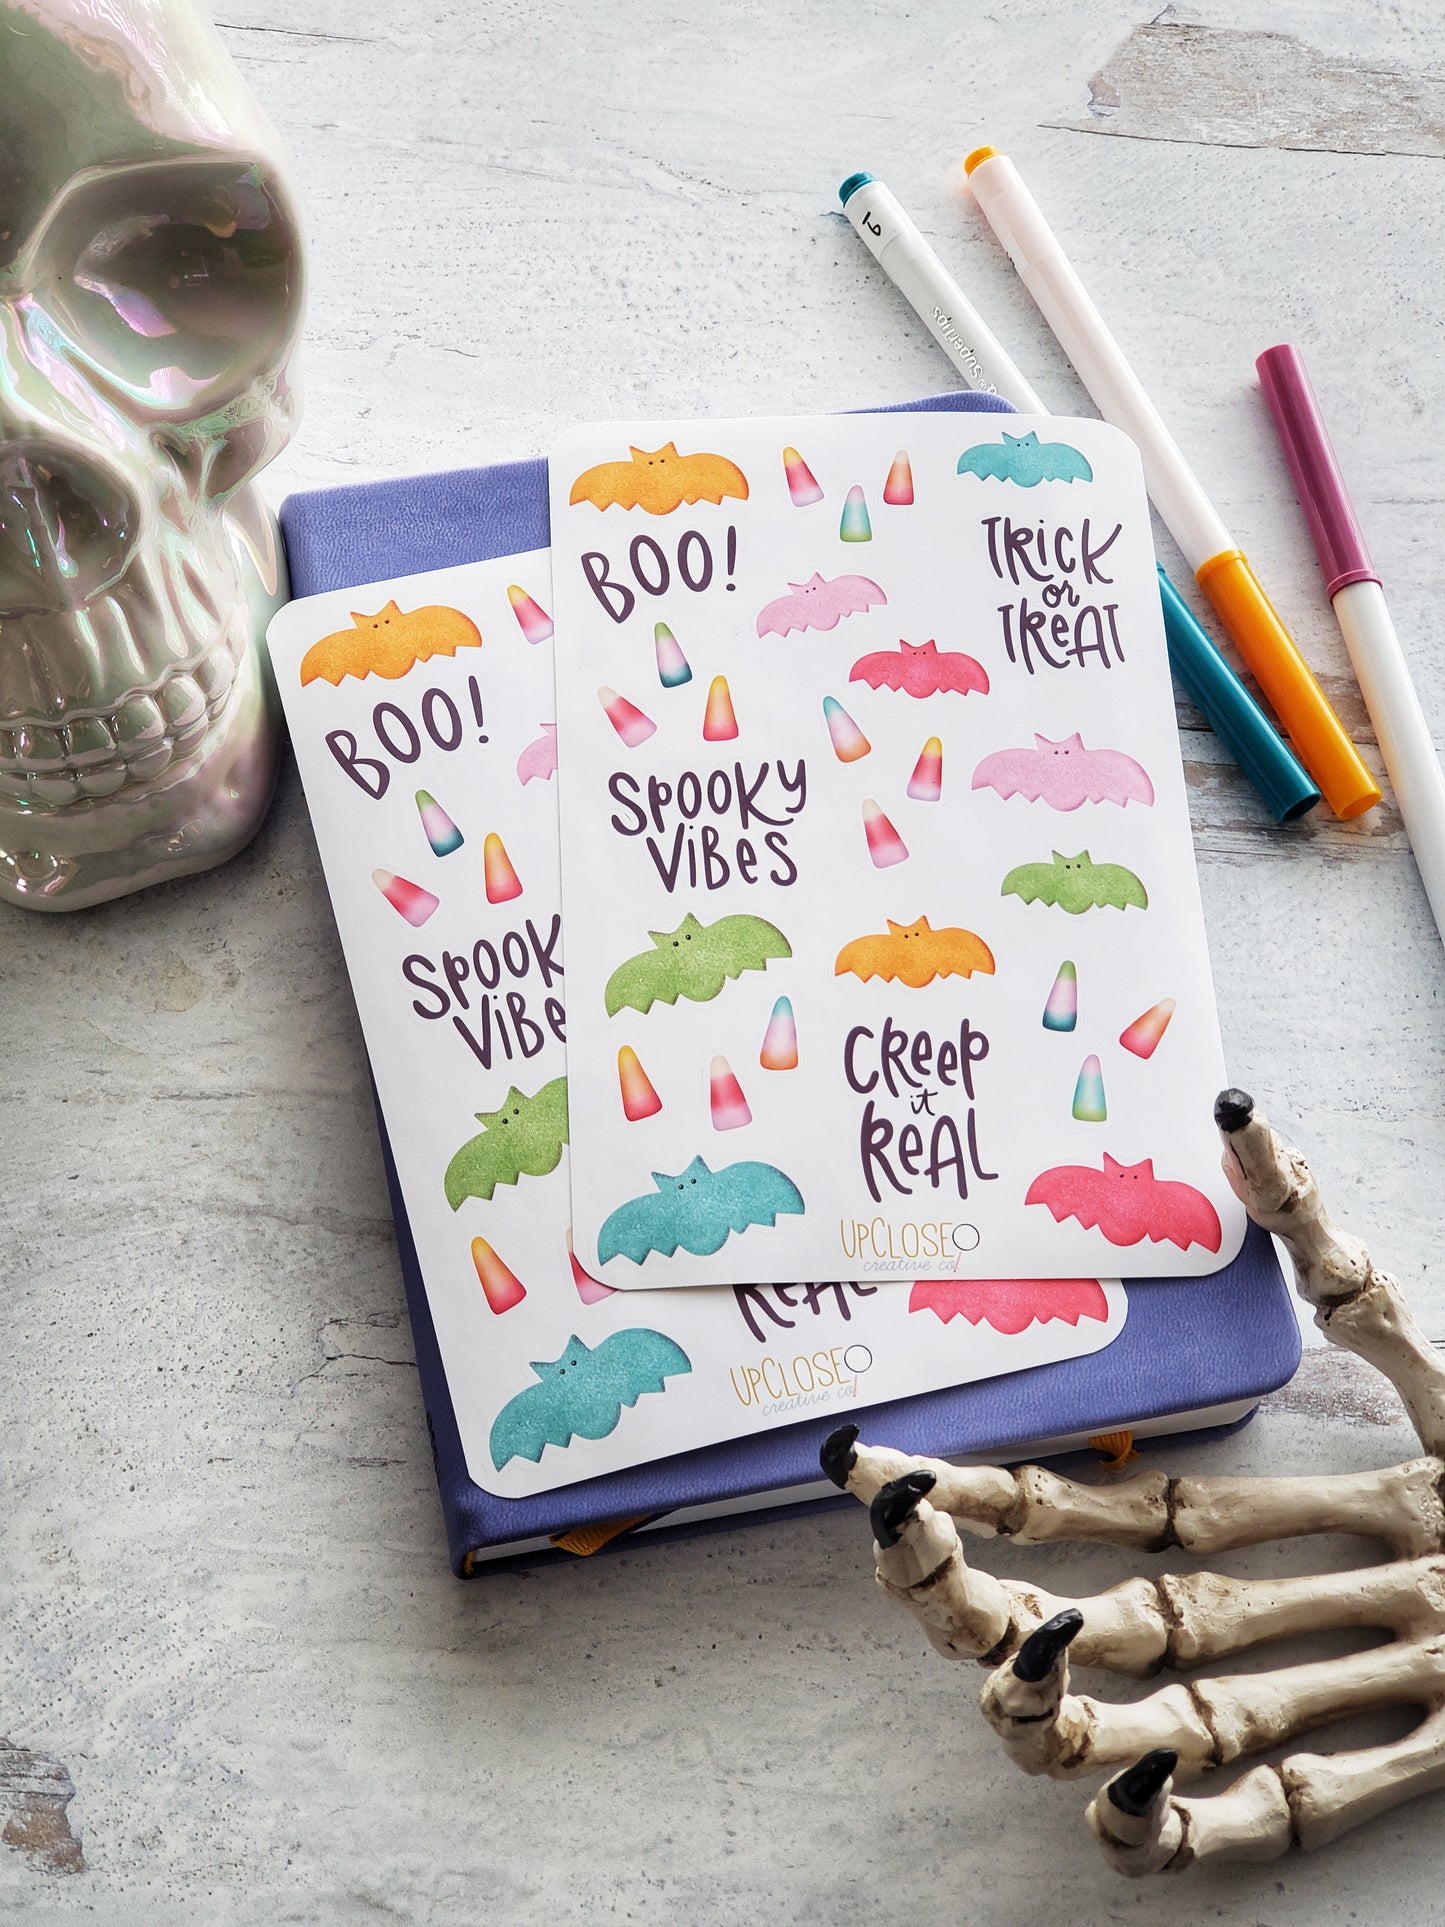 6
Supertips
BOO!
TRiCK
or
TReAT
SPOOKY
ViBeS
CReeP
it
ReAL
UPCLOSE
creative co.
BOO!
SPOOK
ViBe
ReAL
UPCLOSE
creative co.